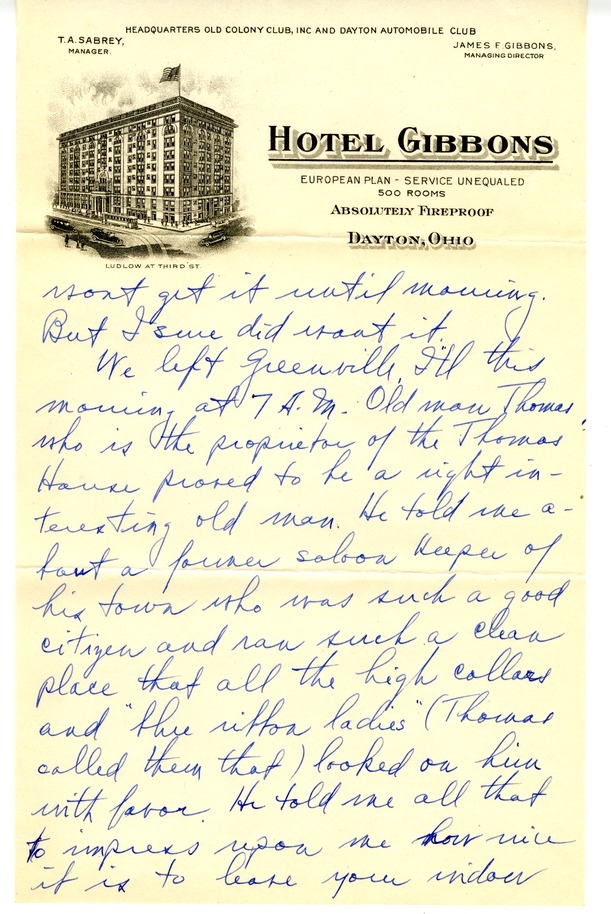 HEADQUARTERS OLD COLONY CLUB, INC AND DAYTON AUTOMOBILE CLUB
T.A. SABREY,
MANAGER.
JAMES F. GIBBONS,
MANAGING DIRECTOR
HOTEL GIBBONS
EUROPEAN PLAN - SERVICE UNEQUALED
500 ROOMS
ABSOLUTELY FIREPROOF
DAYTON, OHIO
LUDLOW AT THIRD ST.
wont get it until morning.
But I sure did want it.
We left Greenville, Ill this
morning at 7 A.M. Old man Thomas,
who is the proprietor of the Thomas
House proved to be a right in-
teresting old man. He told me a-
bout a former saloon keeper of
his town who was such a good
citizen and ran such a clean
place that all the high collars
and "blue ribbon ladies" (Thomas
called them that) looked on him
with favor. He told me all that
to impress upon me how nice
it is to leave your window